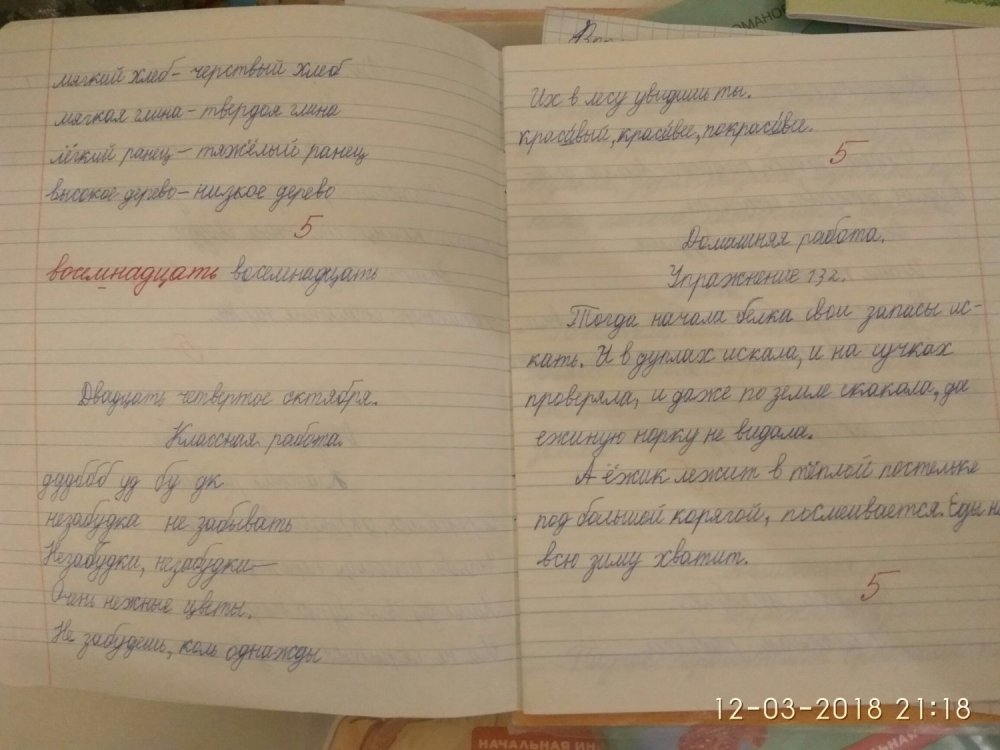 мягкий хлеб – черствый хлеб
мягкая глина – твердая глина
лёгкий ранец – тяжёлый ранец
высокое дерево – низкое дерево
5
восемнадцать восемнадцать
Двадцать четвертое октября.
Классная работа.
дддббб уд бу дк
незабудка не забывать
Незабудки, незабудки –
Очень нежные цветы.
Не забудешь, коль однажды
Их в лесу увидишь ты.
красивый, красивее, покрасивее.
5
Домашняя работа.
Упражнение 132.
Тогда начала белка свои запасы ис-
кать. И в дуплах искала, и на сучках
проверяла, и даже по земле скакала, да
ежиную норку не видала.
А ёжик лежит в тёплой постельке
под большой корягой, посмеивается. Еды на
всю зиму хватит.
5
НАЧАЛЬНАЯ ИН
12-03-2018 21:18